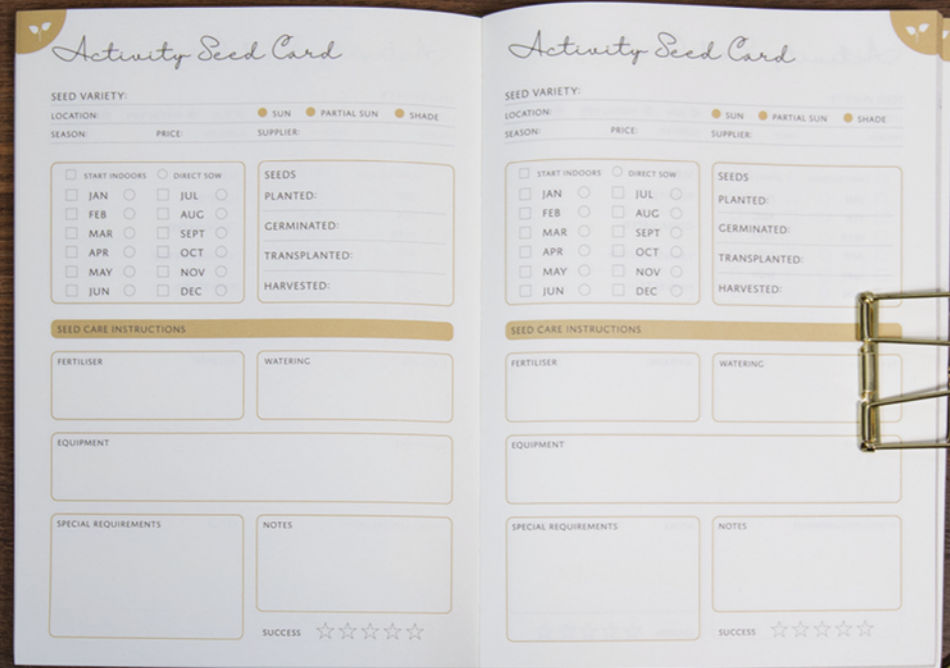 Activity Seed Card
SEED VARIETY:
LOCATION: SUN PARTIAL SUN SHADE
SEASON: PRICE: SUPPLIER:
START INDOORS DIRECT SOW
JAN JUL
FEB AUG
MAR SEPT
APR OCT
MAY NOV
JUN DEC
SEEDS
PLANTED:
GERMINATED:
TRANSPLANTED:
HARVESTED:
SEED CARE INSTRUCTIONS
FERTILISER
WATERING
EQUIPMENT
SPECIAL REQUIREMENTS
NOTES
SUCCESS
Activity Seed Card
SEED VARIETY:
LOCATION: SUN PARTIAL SUN SHADE
SEASON: PRICE: SUPPLIER:
START INDOORS DIRECT SOW
JAN JUL
FEB AUG
MAR SEPT
APR OCT
MAY NOV
JUN DEC
SEEDS
PLANTED:
GERMINATED:
TRANSPLANTED:
HARVESTED:
SEED CARE INSTRUCTIONS
FERTILISER
WATERING
EQUIPMENT
SPECIAL REQUIREMENTS
NOTES
SUCCESS